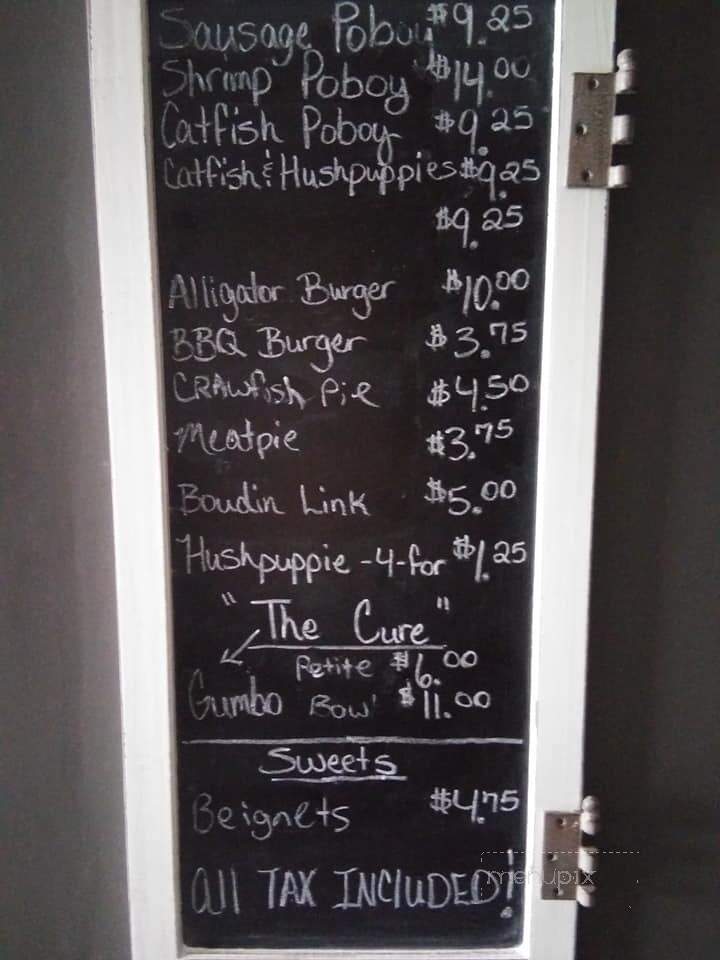 Sausage Poboy $9.25
Shrimp Poboy $14.00
Catfish Poboy $9.25
Catfish & Hushpuppies $9.25
$9.25
Alligator Burger $10.00
BBQ Burger $3.75
CRAWfish Pie $4.50
Meatpie $3.75
Boudin Link $5.00
Hushpuppie -4-for $1.25
"The Cure"
Petite $6.00
Gumbo Bowl $11.00
Sweets
Beignets $4.75
All TAX INCLUDED!
menupix